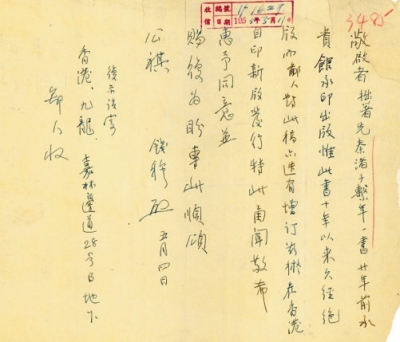 3485
敬啟者拙著先秦諸子繫年一書廿年前承
貴館承印出版惟此書十年以來久經絕
版而鄙人對此稿亦迭有增訂茲擬在香港
自印新版發行特此函聞敬希
惠予同意並
賜復為盼專此順頌
公祺 錢穆 啟 五月四日
復示請寄
香港、九龍、嘉林邊道28号B地下
鄙人收
收信 編號 日期 195 年 月